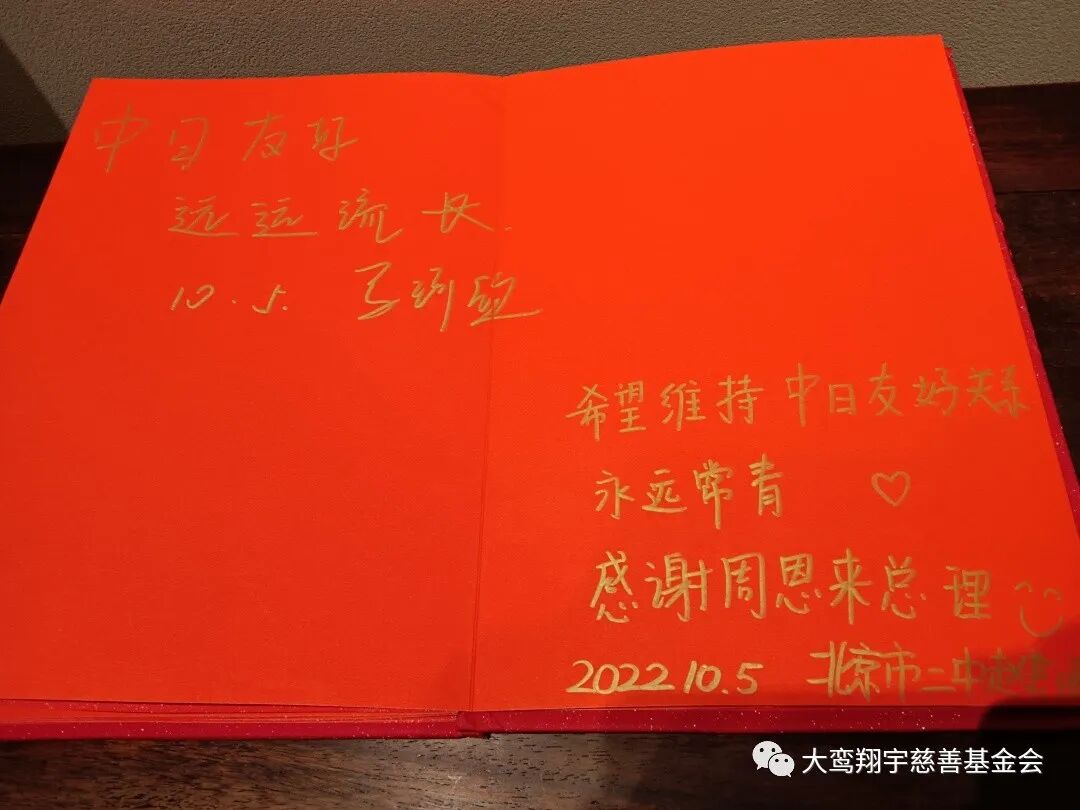 中日友好
远远流长.
10.5.
希望维持中日友好关系
永远常青 ♡
感谢周恩来总理
2022 10.5 北京市二中赵
大鸾翔宇慈善基金会